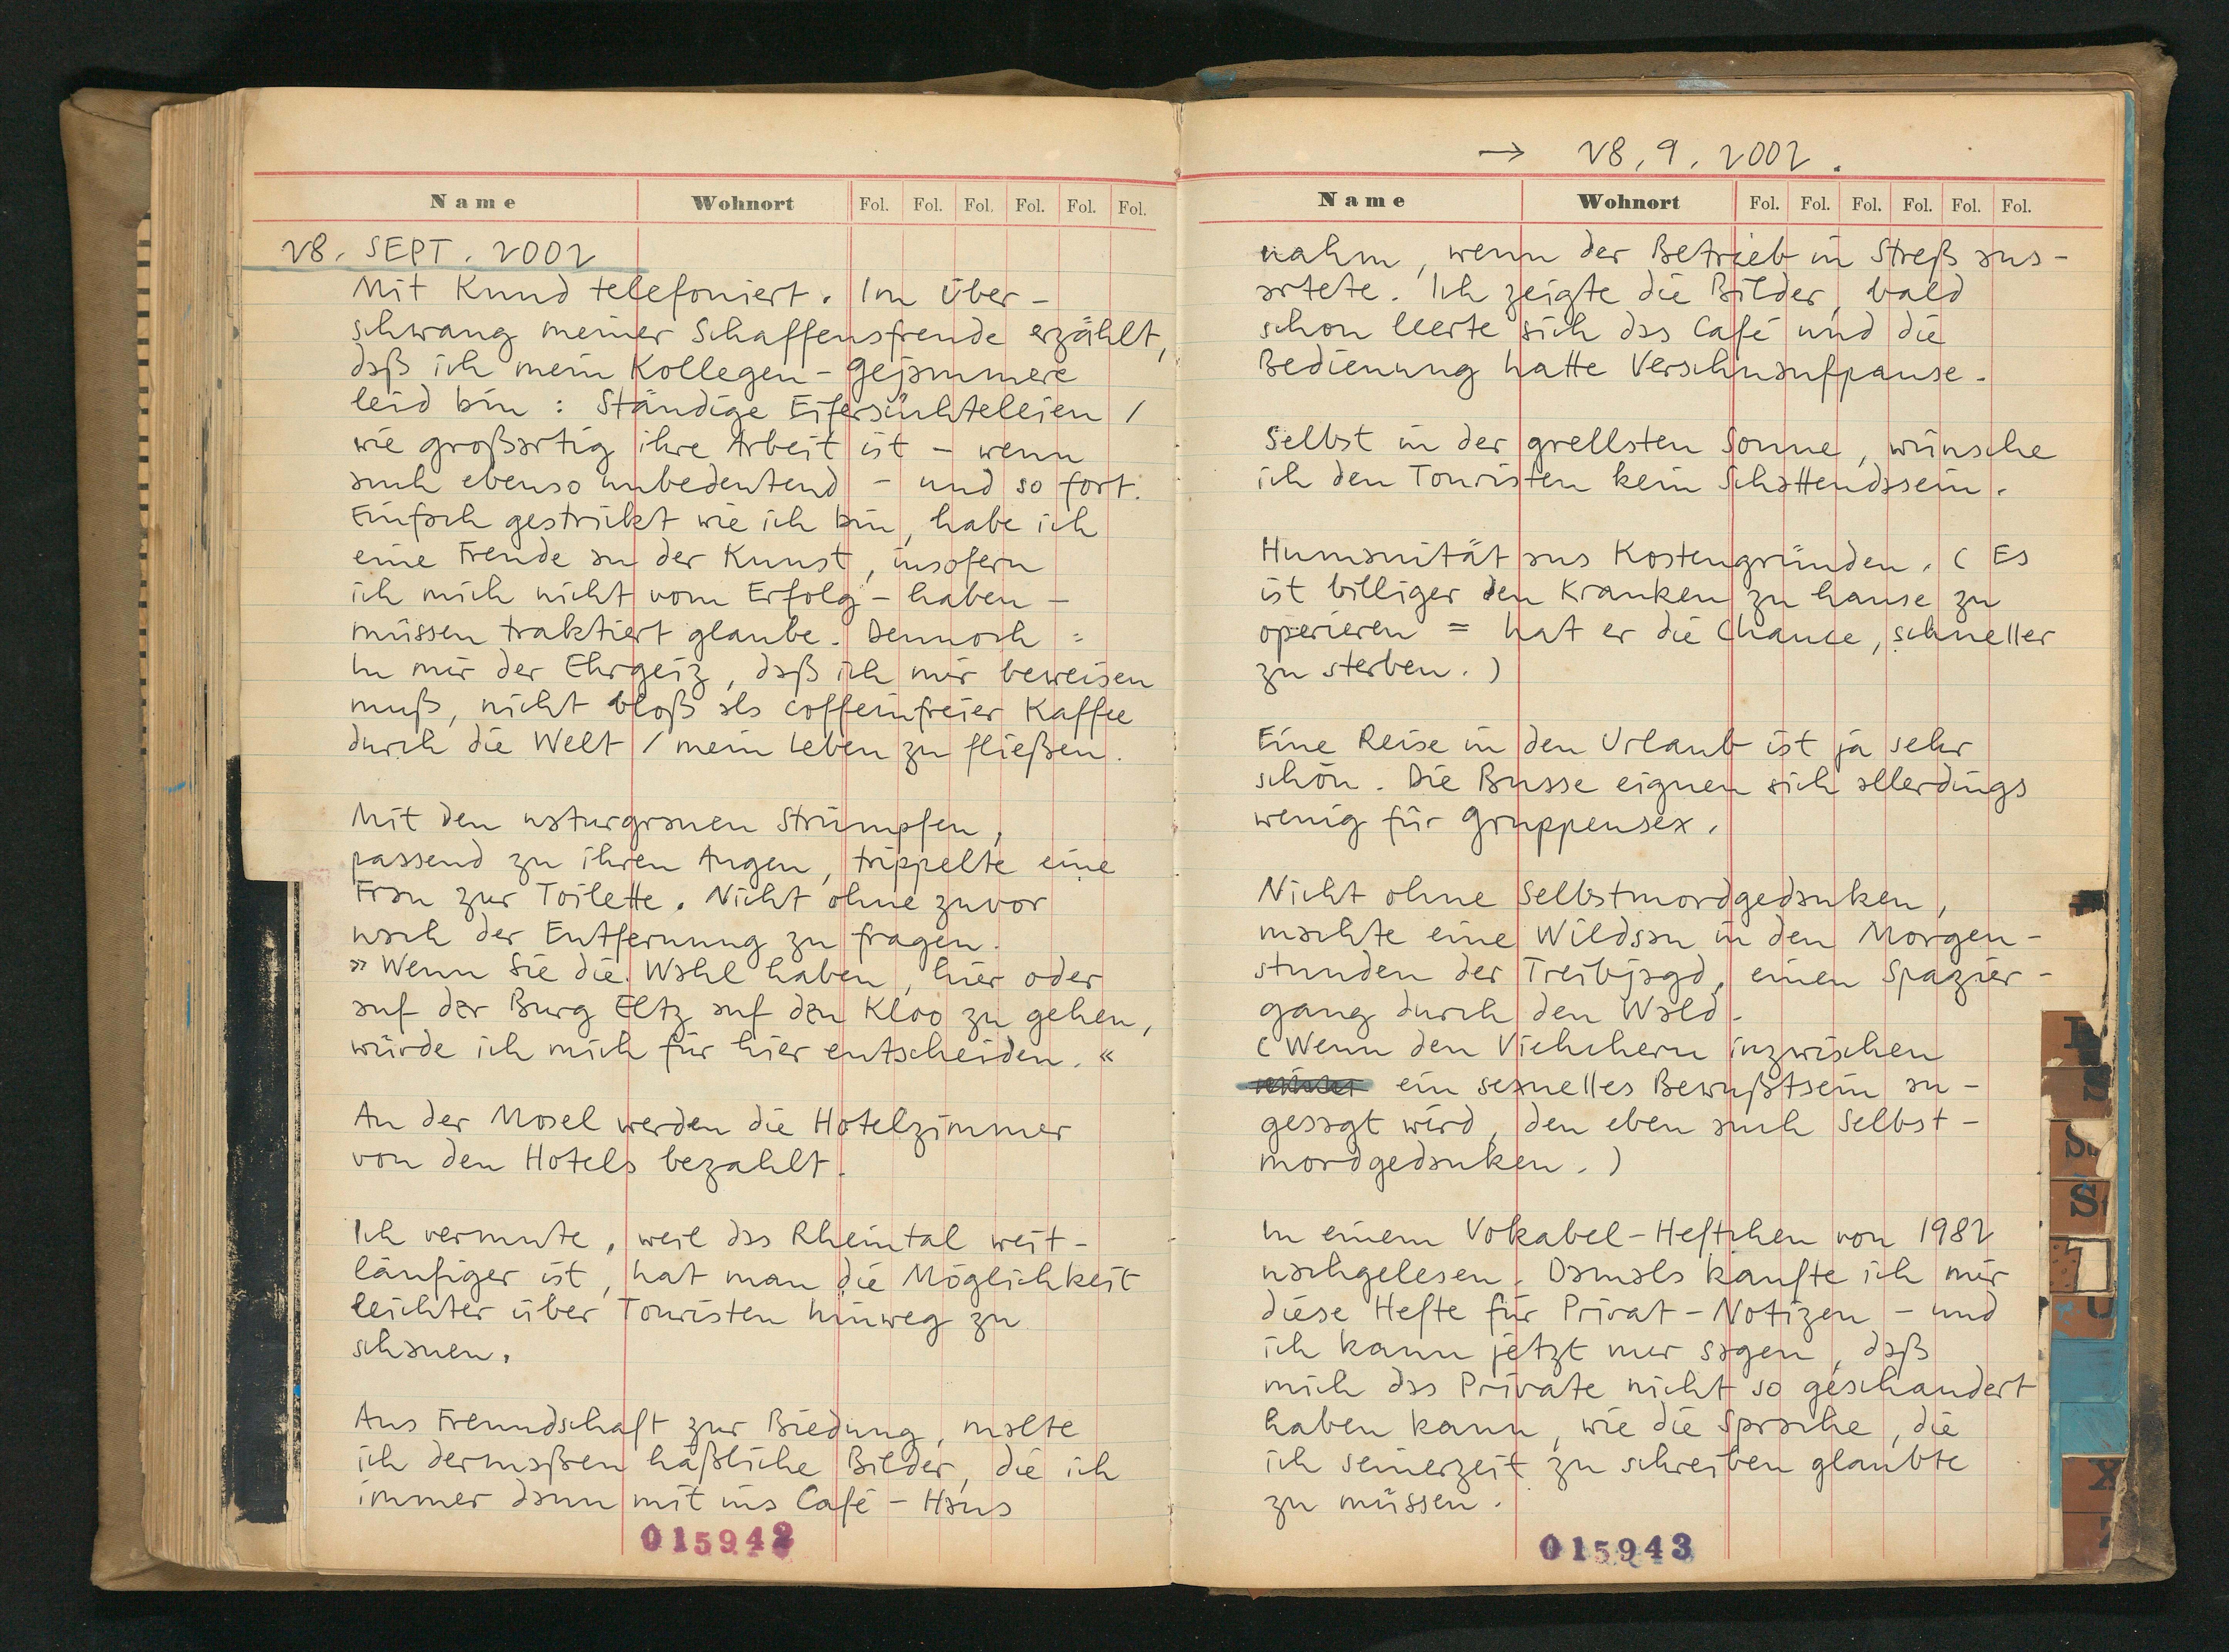 Name Wohnort Fol. Fol. Fol. Fol. Fol. Fol.
28. SEPT. 2002
Mit Knud telefoniert. Im Über-
schwang meiner Schaffensfreude erzählt,
daß ich mein Kollegen-Gejammere
leid bin: Ständige Eifersüchteleien /
wie großartig ihre Arbeit ist - wenn
auch ebenso unbedeutend - und so fort.
Einfach gestrickt wie ich bin, habe ich
eine Freude an der Kunst, insofern
ich mich nicht vom Erfolg-haben-
müssen traktiert glaube. Dennoch:
In mir der Ehrgeiz, daß ich mir beweisen
muß, nicht bloß als coffeinfreier Kaffee
durch die Welt / mein Leben zu fließen.
Mit den naturgrauen Strümpfen,
passend zu ihren Augen, trippelte eine
Frau zur Toilette. Nicht ohne zuvor
nach der Entfernung zu fragen.
» Wenn Sie die Wahl haben, hier oder
auf der Burg Eltz auf den Kloo zu gehen,
würde ich mich für hier entscheiden. «
An der Mosel werden die Hotelzimmer
von den Hotels bezahlt.
Ich vermute, weil das Rheintal weit-
läufiger ist, hat man die Möglichkeit
leichter über Touristen hinweg zu
schauen.
Aus Freundschaft zur Biedung, malte
ich dermaßen häßliche Bilder, die ich
immer dann mit ins Café-Haus
015942
→ 28.9.2002.
Name Wohnort Fol. Fol. Fol. Fol. Fol. Fol.
nahm, wenn der Betrieb in Streß aus-
artete. Ich zeigte die Bilder, bald
schon leerte sich das Café und die
Bedienung hatte Verschnaufpause.
Selbst in der grellsten Sonne, wünsche
ich den Touristen kein Schattendasein.
Humanität aus Kostengründen. (Es
ist billiger den Kranken zu hause zu
operieren = hat er die Chance, schneller
zu sterben.)
Eine Reise in den Urlaub ist ja sehr
schön. Die Busse eignen sich allerdings
wenig für Gruppensex.
Nicht ohne Selbstmordgedanken,
machte eine Wildsau in den Morgen-
stunden der Treibjagd, einen Spazier-
gang durch den Wald.
(Wenn den Viehchern inzwischen
ein sexuelles Bewußtsein an-
gesagt wird, den eben auch Selbst-
mordgedanken.)
In einem Vokabel-Heftchen von 1982
nachgelesen. Damals kaufte ich mir
diese Hefte für Privat-Notizen - und
ich kann jetzt nur sagen, daß
mich das Private nicht so geschaudert
haben kann, wie die Sprache, die
ich seinerzeit zu schreiben glaubte
zu müssen.
015943